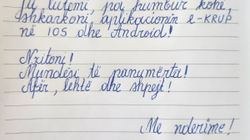 Ju lutemi, pa humbur kohë,
shkarkoni aplikacionin e-KRUP
në IOS dhe Android!
Nxitoni!
Mundësi të panumërta!
Afër, lehtë dhe shpejt!
Me nderime!